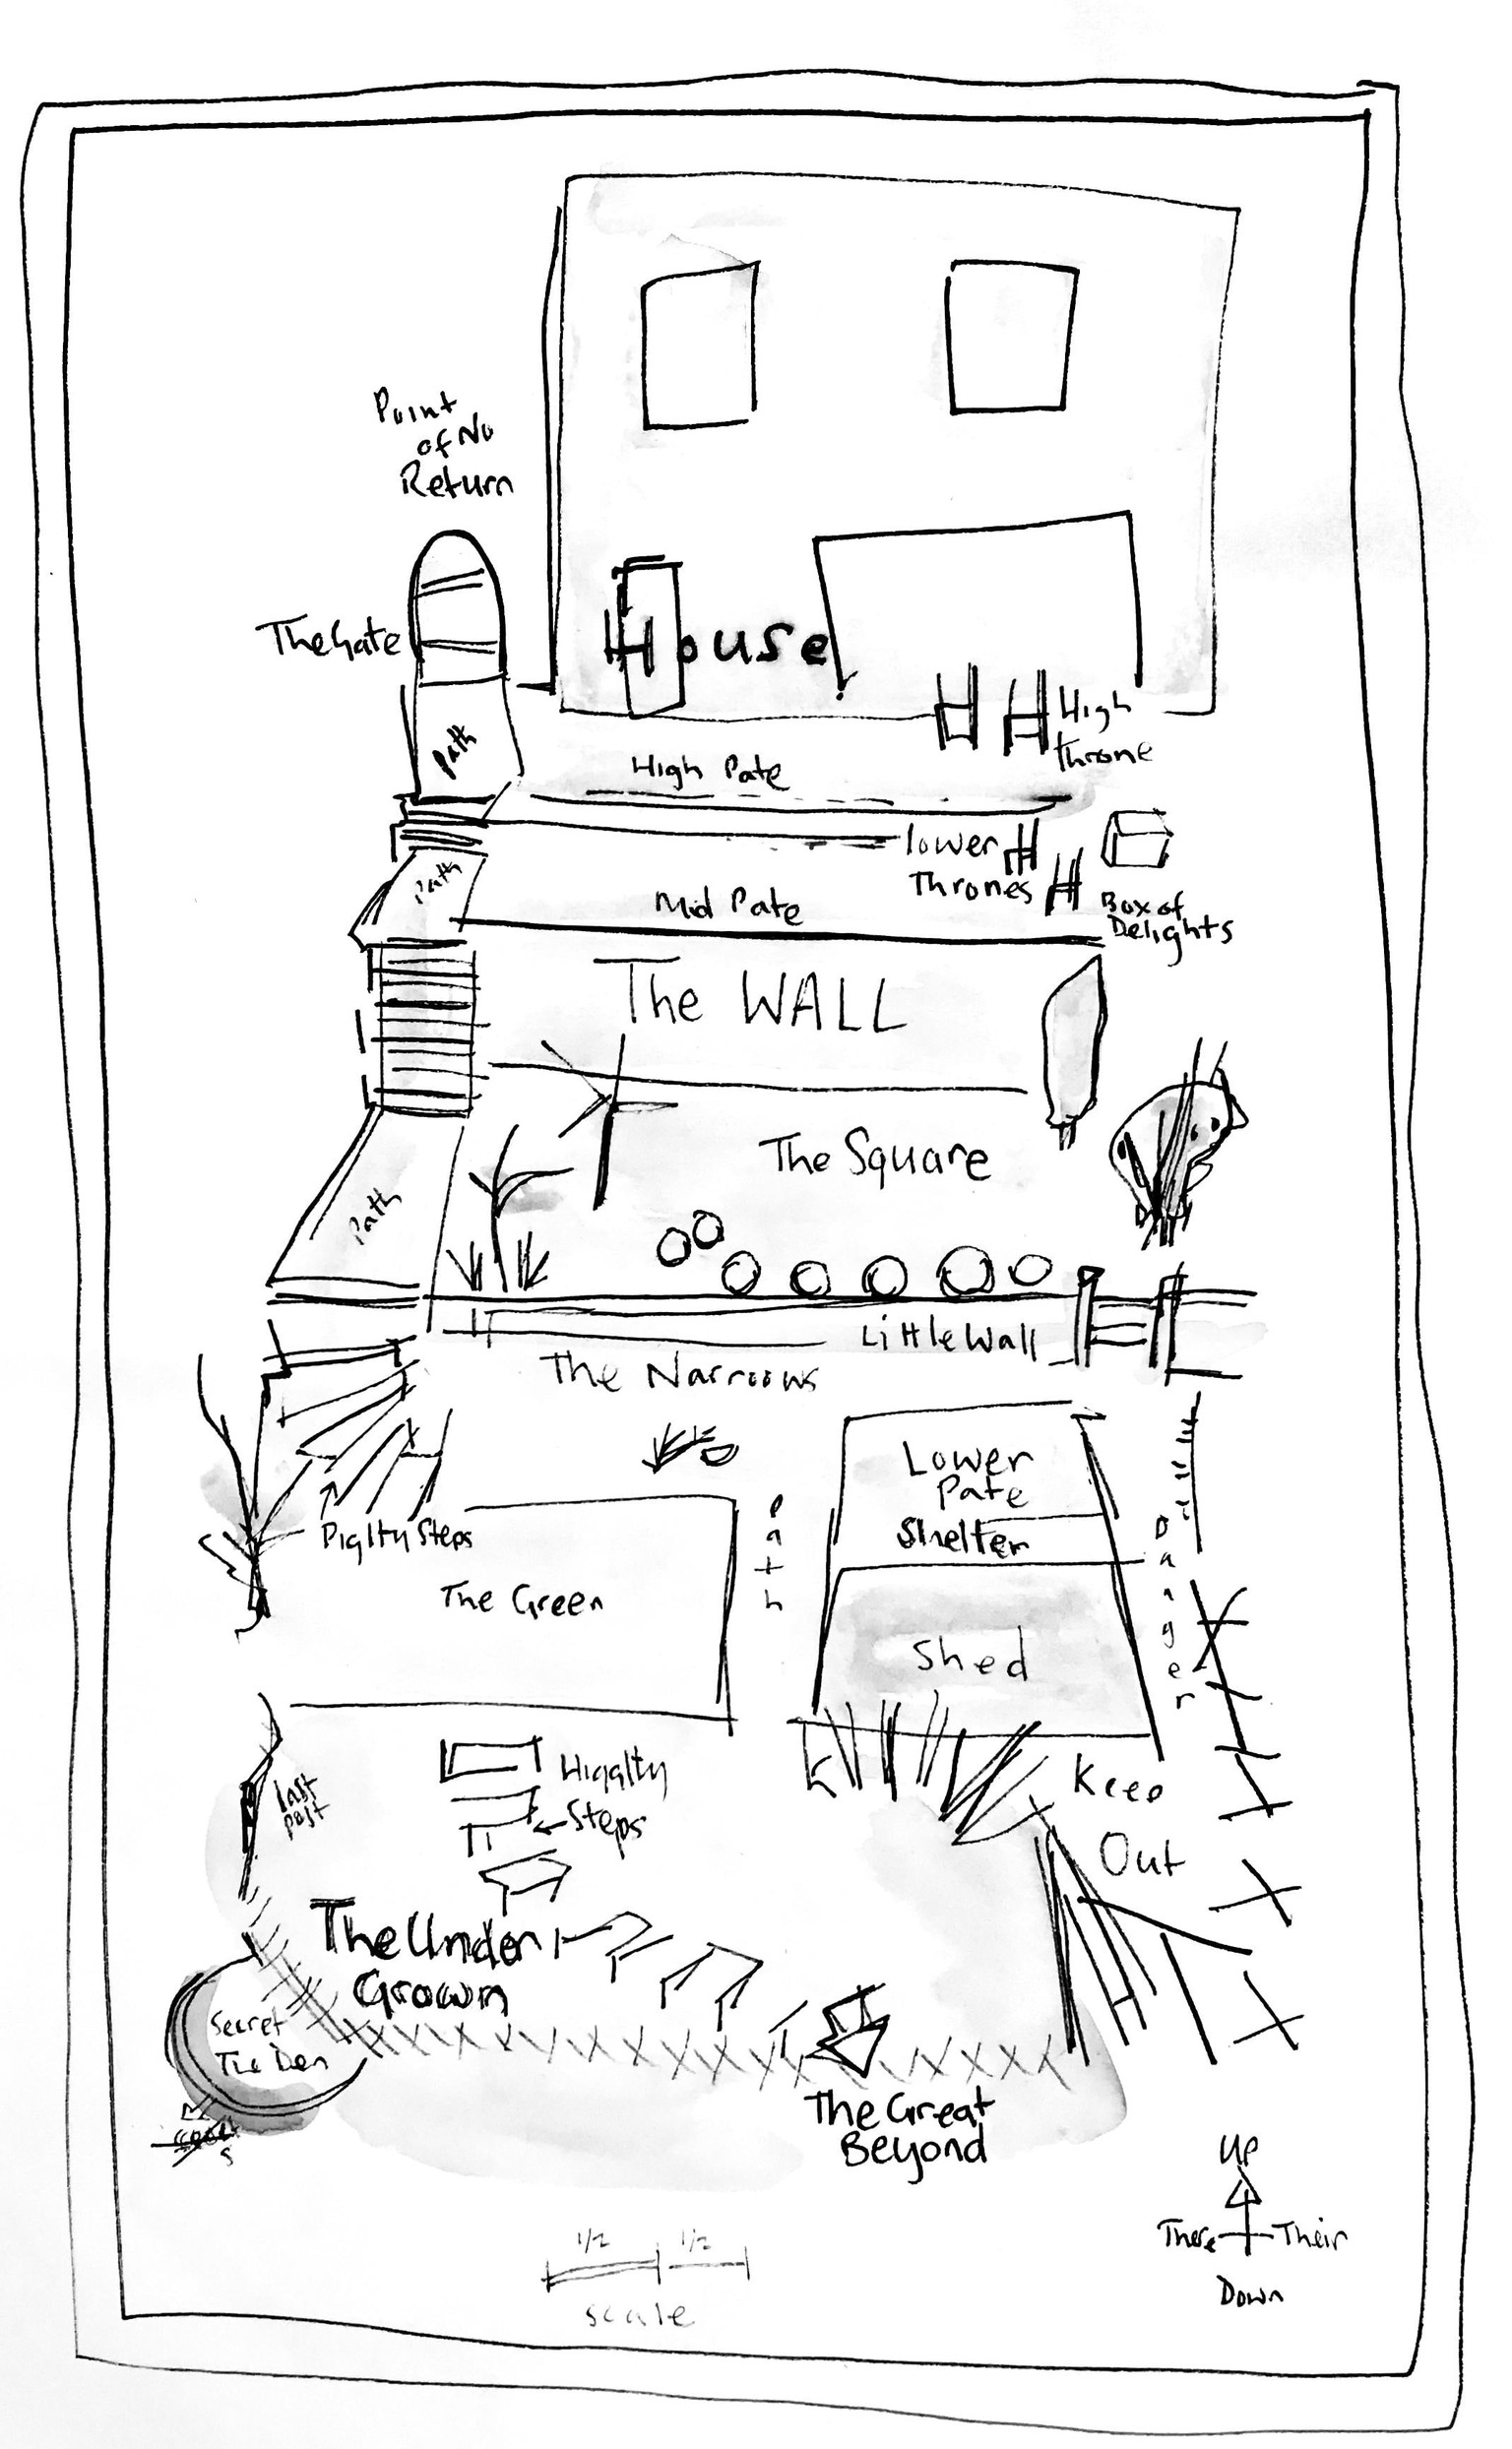 Point
of No
Return
The Gate
House
Path
High Pate
High
Throne
Path
lower
Thrones
Mid Pate
Box of
Delights
The WALL
The Square
Path
Little Wall
The Narrows
Lower
Pate
Shelter
Piglty Steps
Path
Danger
The Green
Shed
Higglty
Steps
Last
Post
Keep
Out
The Under
Grown
Secret
The Den
The Great
Beyond
Up
There
Their
Down
1/2
1/2
scale